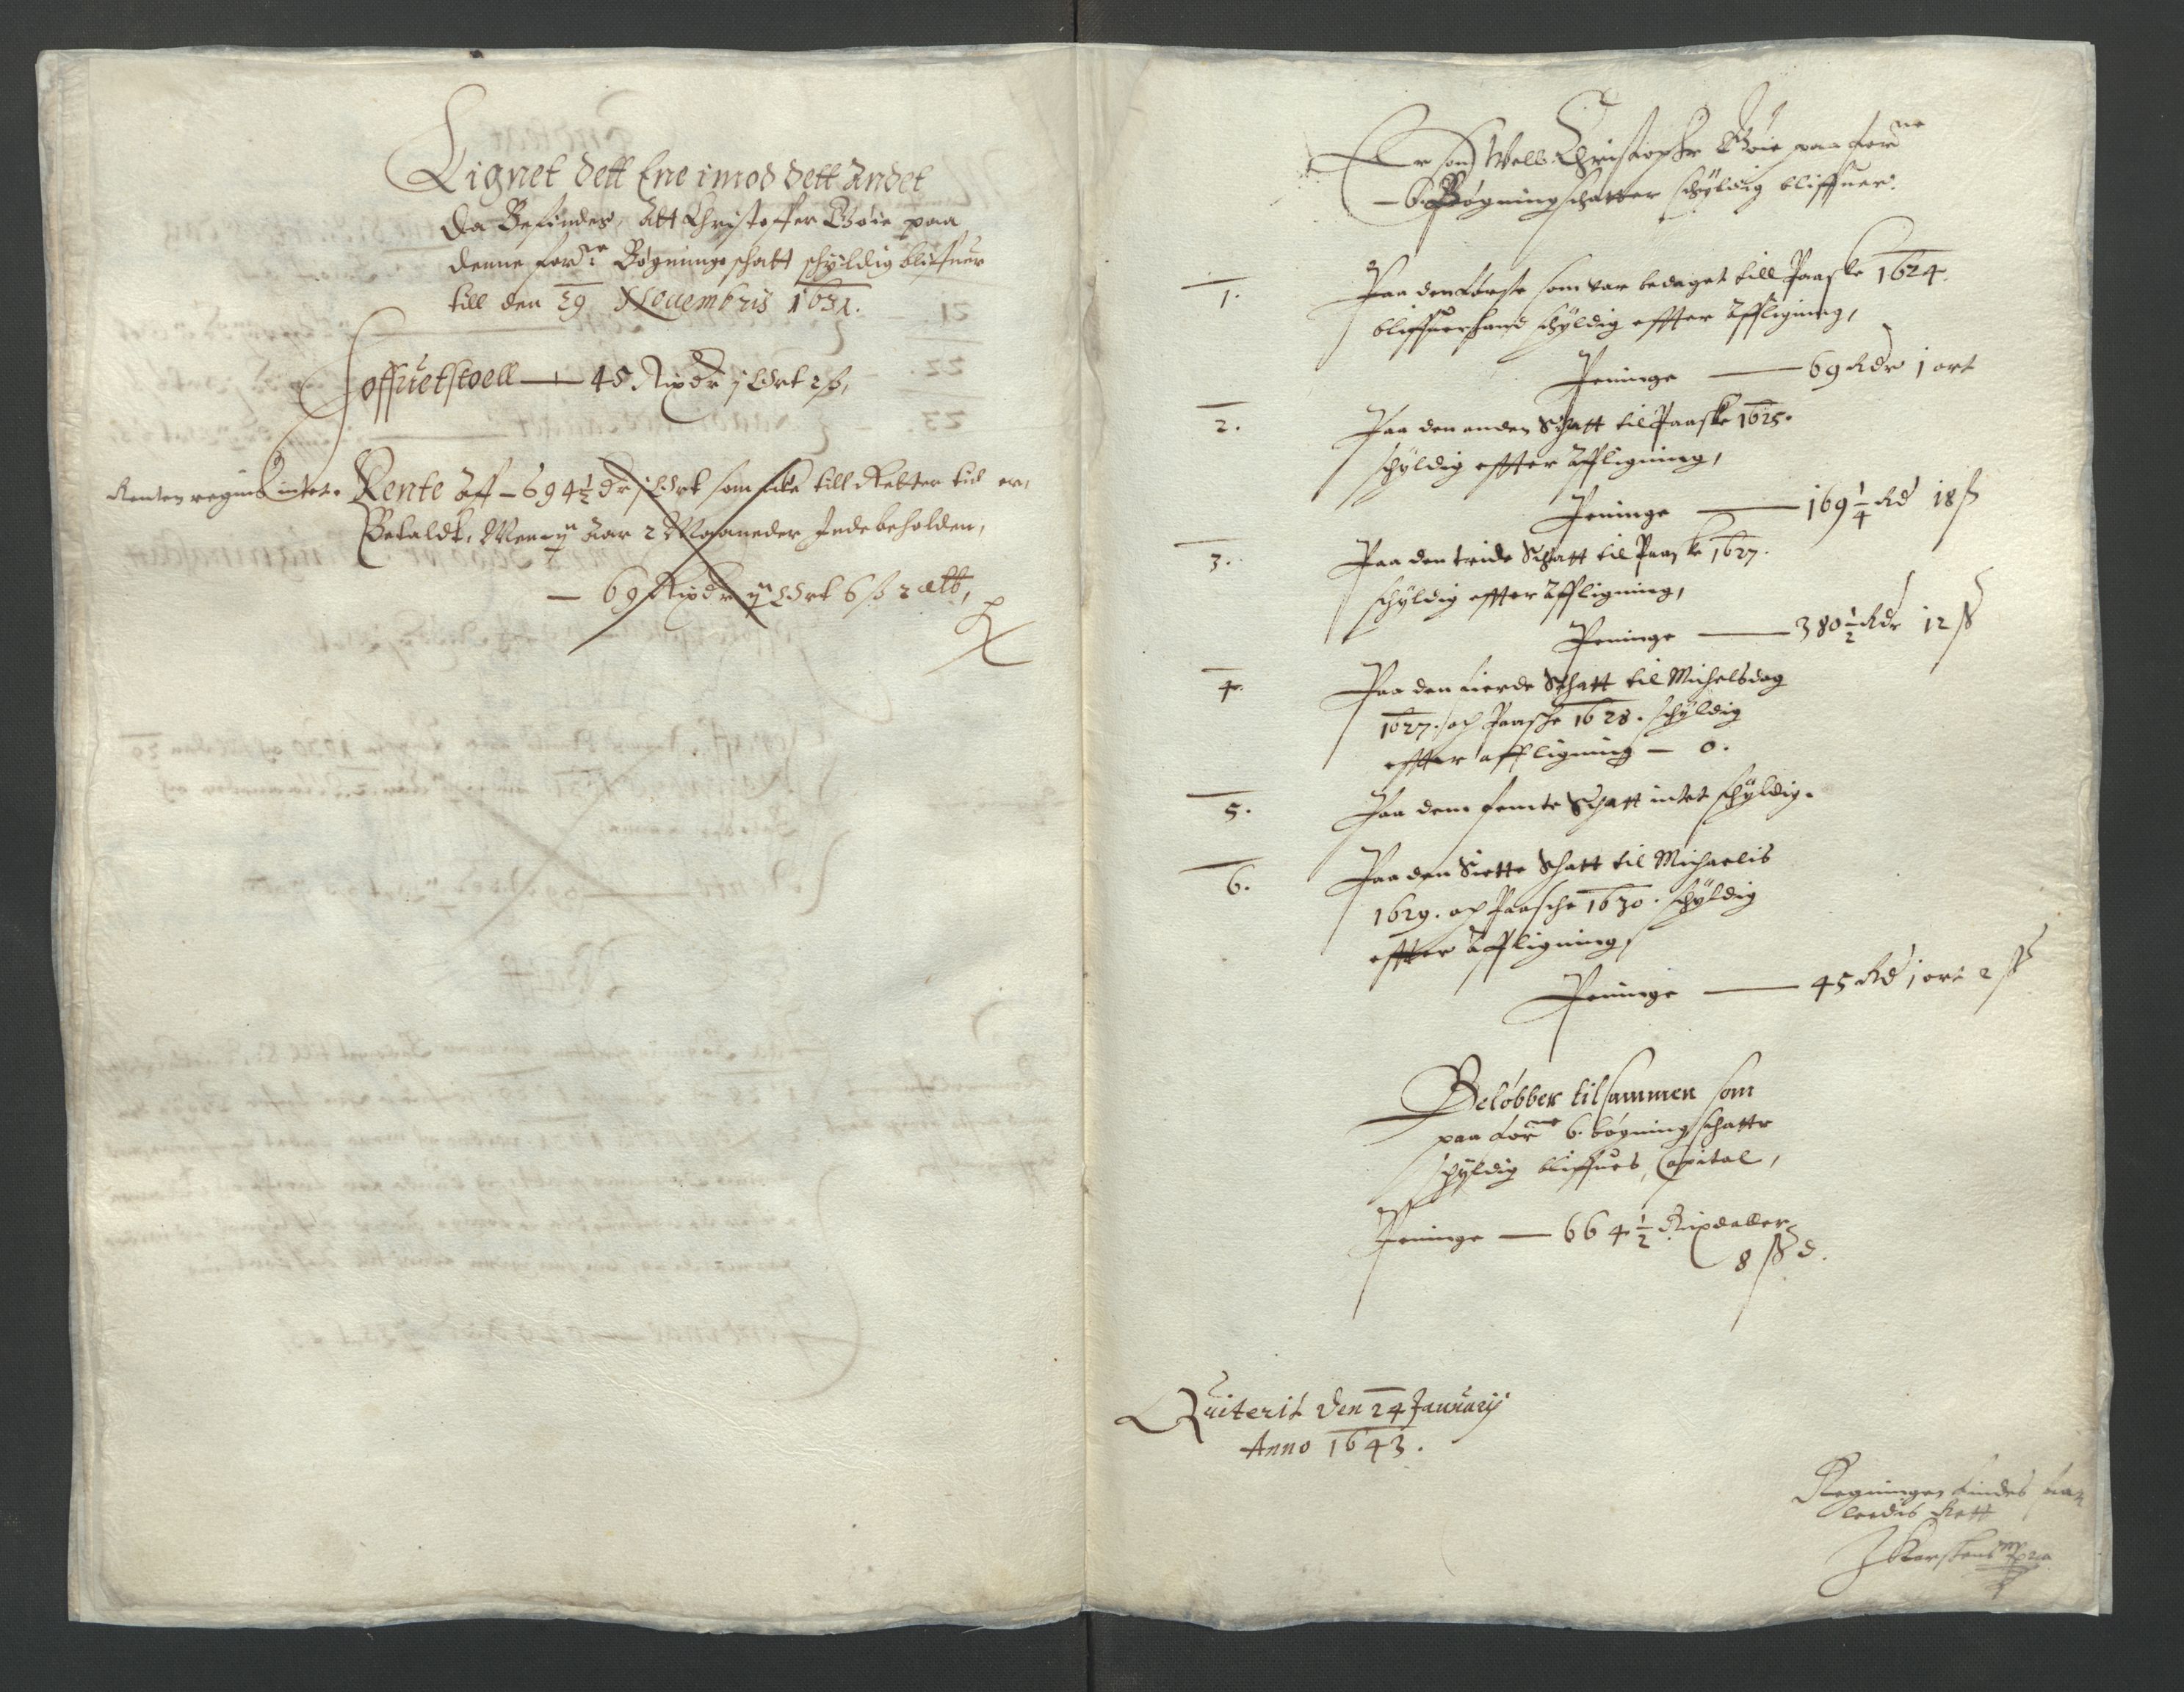 Lignet dett Ene imod dett Andet
da Befindes, Att Christoffer Gøie paa
denne forne Bøgnings schatt schyldig bliffuer
till den 29 Nouembris 1631.
Hoffuetstoell — 45 Rixdr j Ort 2 ß,
Renten regnes intet. Rente Aff – 694½ dr j Ort som icke till Retter tid er,
Betaldt, Men ij Aar 2 Maaneder Indebeholden,
— 69 Rixdr ij Ort 6 ß 2 alb,
Er som Welb. Christopher Gøie paa forne
6. Bøgning schatter schyldig bliffuer.
1. Paa den første som var bedaget till Paaske 1624.
bliffuer hand schyldig effter Affligning,
Peninge — 69 Rdr 1 ort
2. Paa den anden Schatt til Paaske 1625.
schyldig effter Affligning,
Peninge — 169¼ Rd 18 ß
3. Paa den tride Schatt til Paaske 1627.
schyldig effter Affligning,
Peninge — 380½ Rdr 12 ß
4. Paa den fierde Schatt til Michelsdag
1627. och Paasche 1628. schyldig
effter affligning — 0.
5. Paa dem femte Schatt intet schyldig.
6. Paa den Siette Schatt til Michaelis
1629. och Paasche 1630. schyldig
effter Affligning,
Peninge — 45 Rd j ort 2 ß
Beløbber tilsammen som
paa forne 6. bøgning schatte
schyldig bliffues, Capital,
Peninge — 664½ Rixdaller
8 ß d.
Quiterit den 24 January
Anno 1643.
Regningen findes saa
leedis Rett